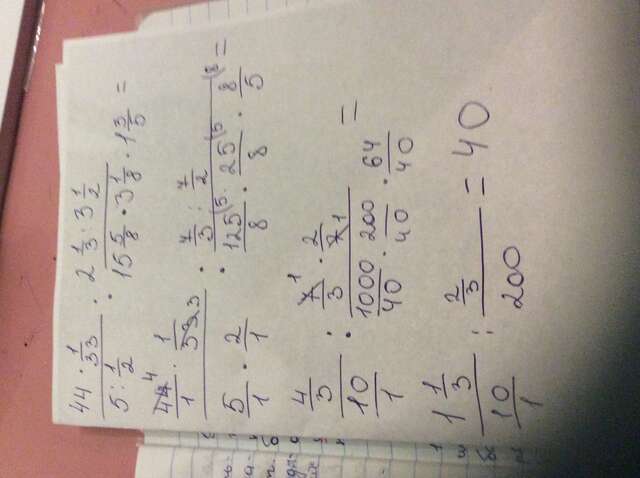 44 · 1/33 / 5 : 1/2 : 2 1/3 : 3 1/2 / 15 5/8 · 3 1/8 · 1 3/5 =
44 4/1 · 1/33 3 / 5/1 · 2/1 : 7/3 : 7/2 / 125(5/8 · 25(5/8 · 8(8/5 =
4/3 / 10/1 : 7 1/3 · 2/7 1 / 1000/40 · 200/40 · 64/40 =
1 1/3 / 10/1 : 2/3 / 200 = 40